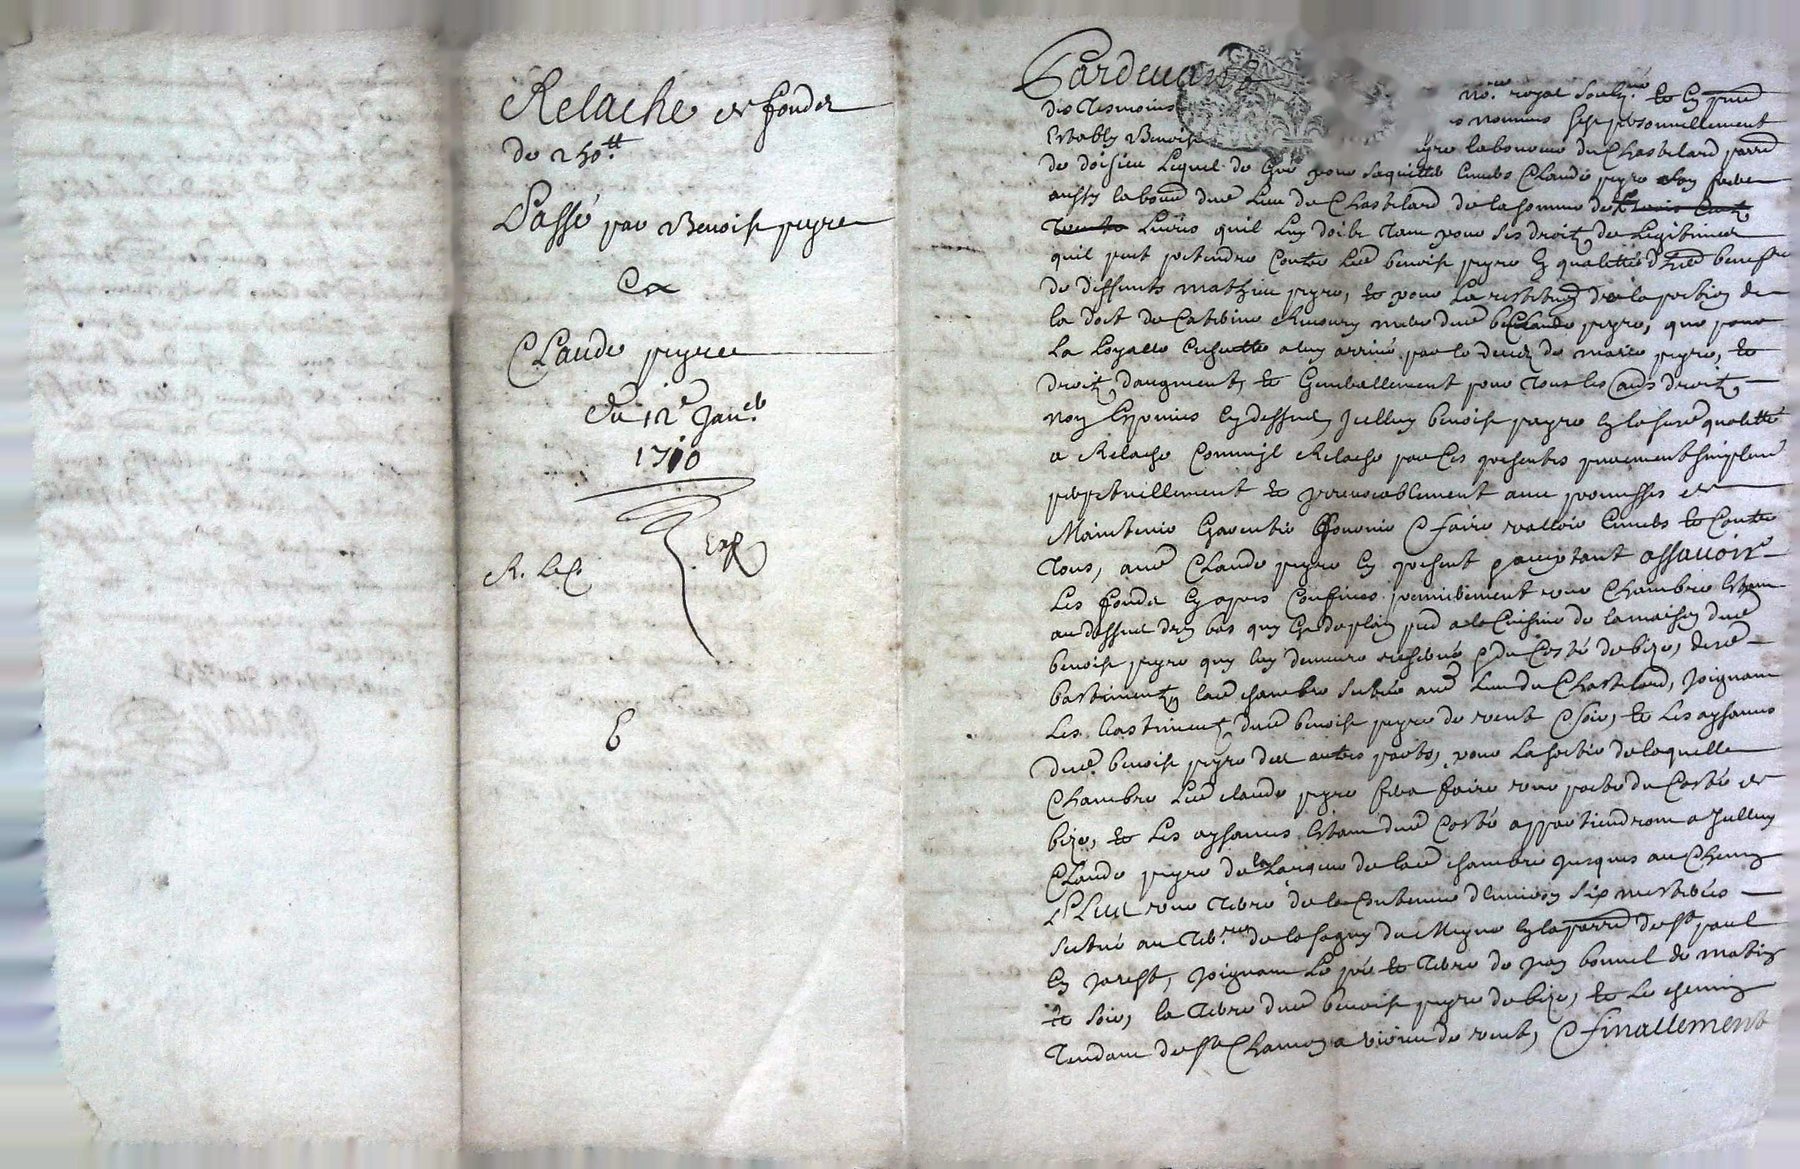 Relache de fonds
de 250 ₶
Passé par Benoist peyre
a
Claude peyre
Du 12e Janer
1710
Exp
R. Le C.
E
Pardevant nore royal soubzné & en pnce
des tesmoins nommés sest personnellement
Estably Benoist peyre laboureur du Chastelard parre
de doisieu Lequel de gré pour saquitter envers Claude peyre son frere
aussy labour dud Lieu du Chastelard de la somme de
Livres quil luy doibt tant pour ses droits de Legitimes
quil peut pretendre Contre Led benoist peyre en qualitté d'herer benefre
de deffunts mathieu peyre, & pour la restituon de la portion de
la dot de Catherine mere dud Claude peyre, que pour
La Loyalle a luy arrivée par le deces de marie peyre, &
droits daugment, & Generallement pour tous les auts droits
non Exprimés cy dessus Jcelluy benoist peyre en la sue qualitté
a Relaché Comme jl Relache par Ces presentes purement simplemt
perpetuellement & jrrevocablement avec promesses de
Maintenir Garentir fournir & faire valloir Envers & Contre
tous, aud Claude peyre cy present & aceptant assavoir
Les fonds cy apres Confinés premierement une Chambre Estant
au dessus dun bas quy est de plain pied a la Cuisine de la maison dud
benoist peyre quy luy demeure reservée & du Costé de bize, desd
bastiments lad chambre scituée aud Lieu du Chastelard, joignant
Les bastiments dud benoist peyre de vent & soir, & les aysances
dud benoist peyre des autres parts, pour la sortie de laquelle
Chambre Led claude peyre fera faire une porte du Costé de
bize, & Les aysances Estant dud Costé appartiendront a Jcelluy
Claude peyre de la Largeur de lad chambre jusques au Chemin
Plus une terre de la Contenue denviron six mesterées
scitué au terre de la fagny du Meyne en la parre de st paul
En jarest, joignant Le pré & terre de jean bonnel de matin
& soir, la terre dud benoist peyre de bize, & Le chemin
tendant de st Chamon a de vent, & finallement